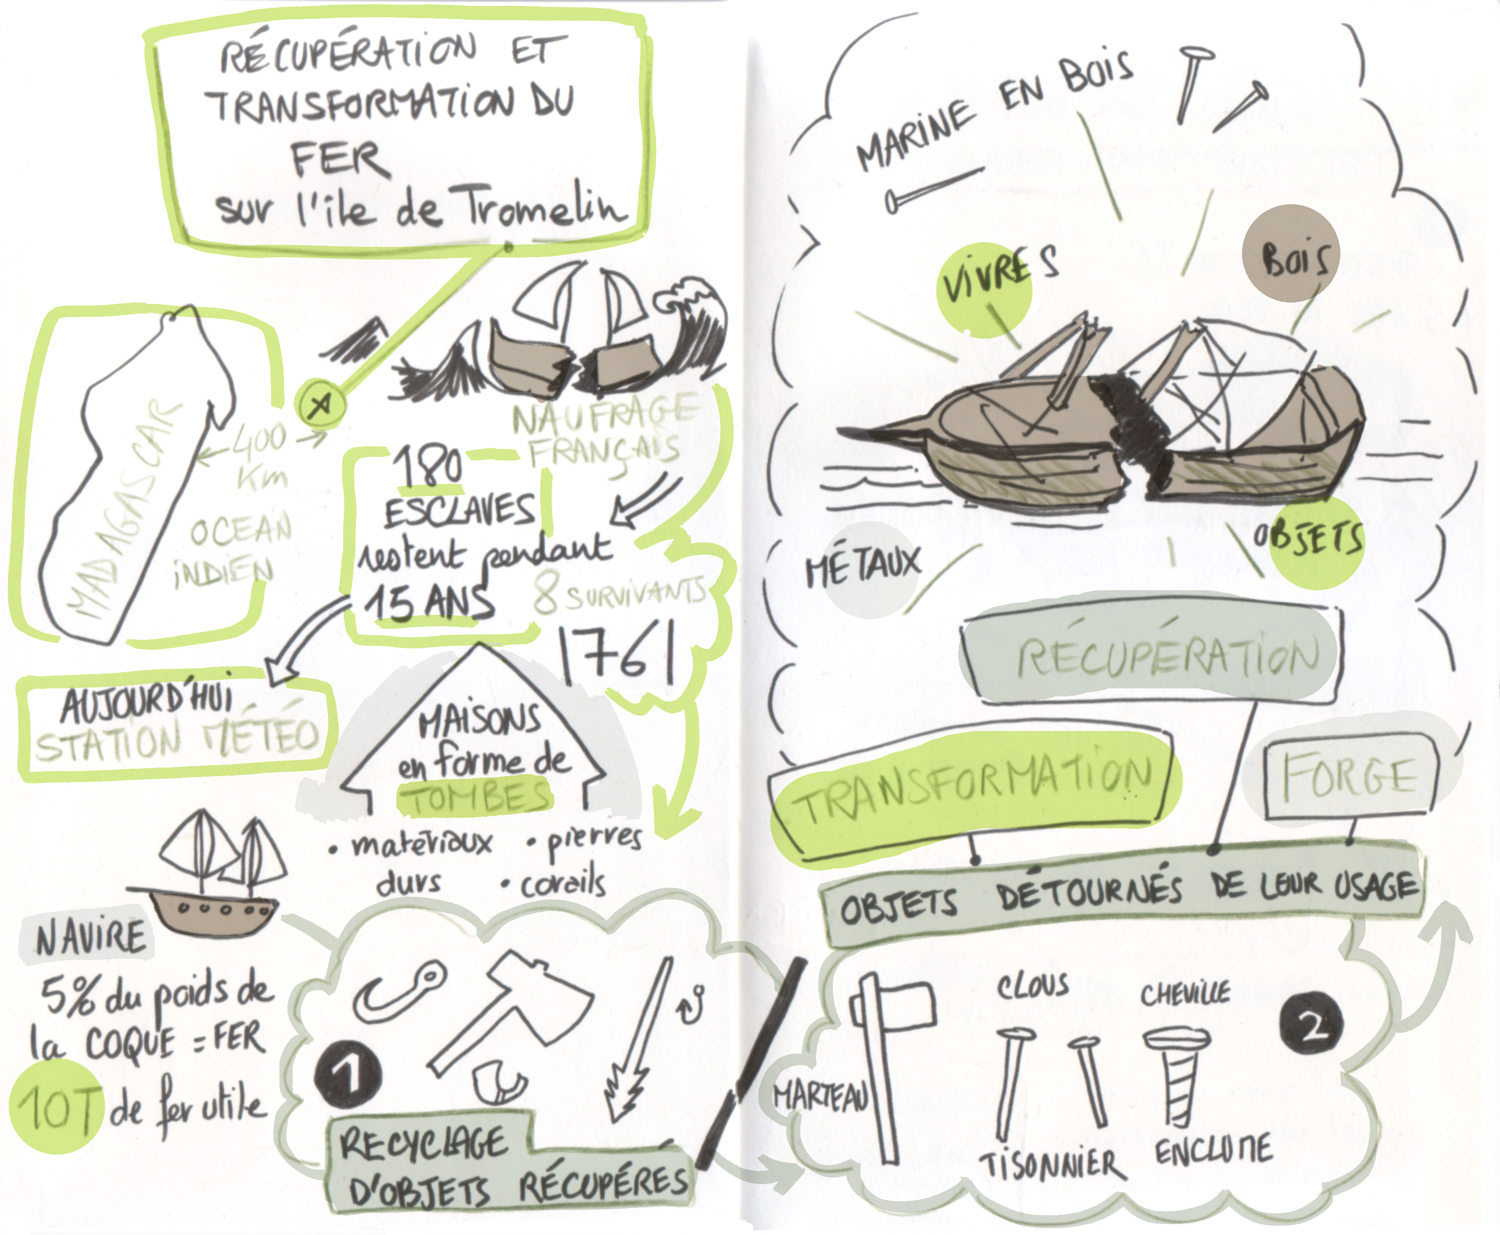 RÉCUPÉRATION ET
TRANSFORMATION DU
FER
sur l'île de Tromelin
MADAGASCAR
400
Km
OCEAN
INDIEN
NAUFRAGE
FRANÇAIS
180
ESCLAVES
restent pendant
15 ANS
8 SURVIVANTS
1761
AUJOURD'HUI
STATION MÉTÉO
MAISONS
en forme de
TOMBES
• matériaux
durs
• pierres
• corails
NAVIRE
5% du poids de
la COQUE = FER
10T de fer utile
1
RECYCLAGE
D'OBJETS RÉCUPÉRÉS
MARINE EN BOIS
VIVRES
BOIS
MÉTAUX
OBJETS
RÉCUPÉRATION
TRANSFORMATION
FORGE
OBJETS DÉTOURNÉS DE LEUR USAGE
MARTEAU
CLOUS
TISONNIER
CHEVILLE
ENCLUME
2